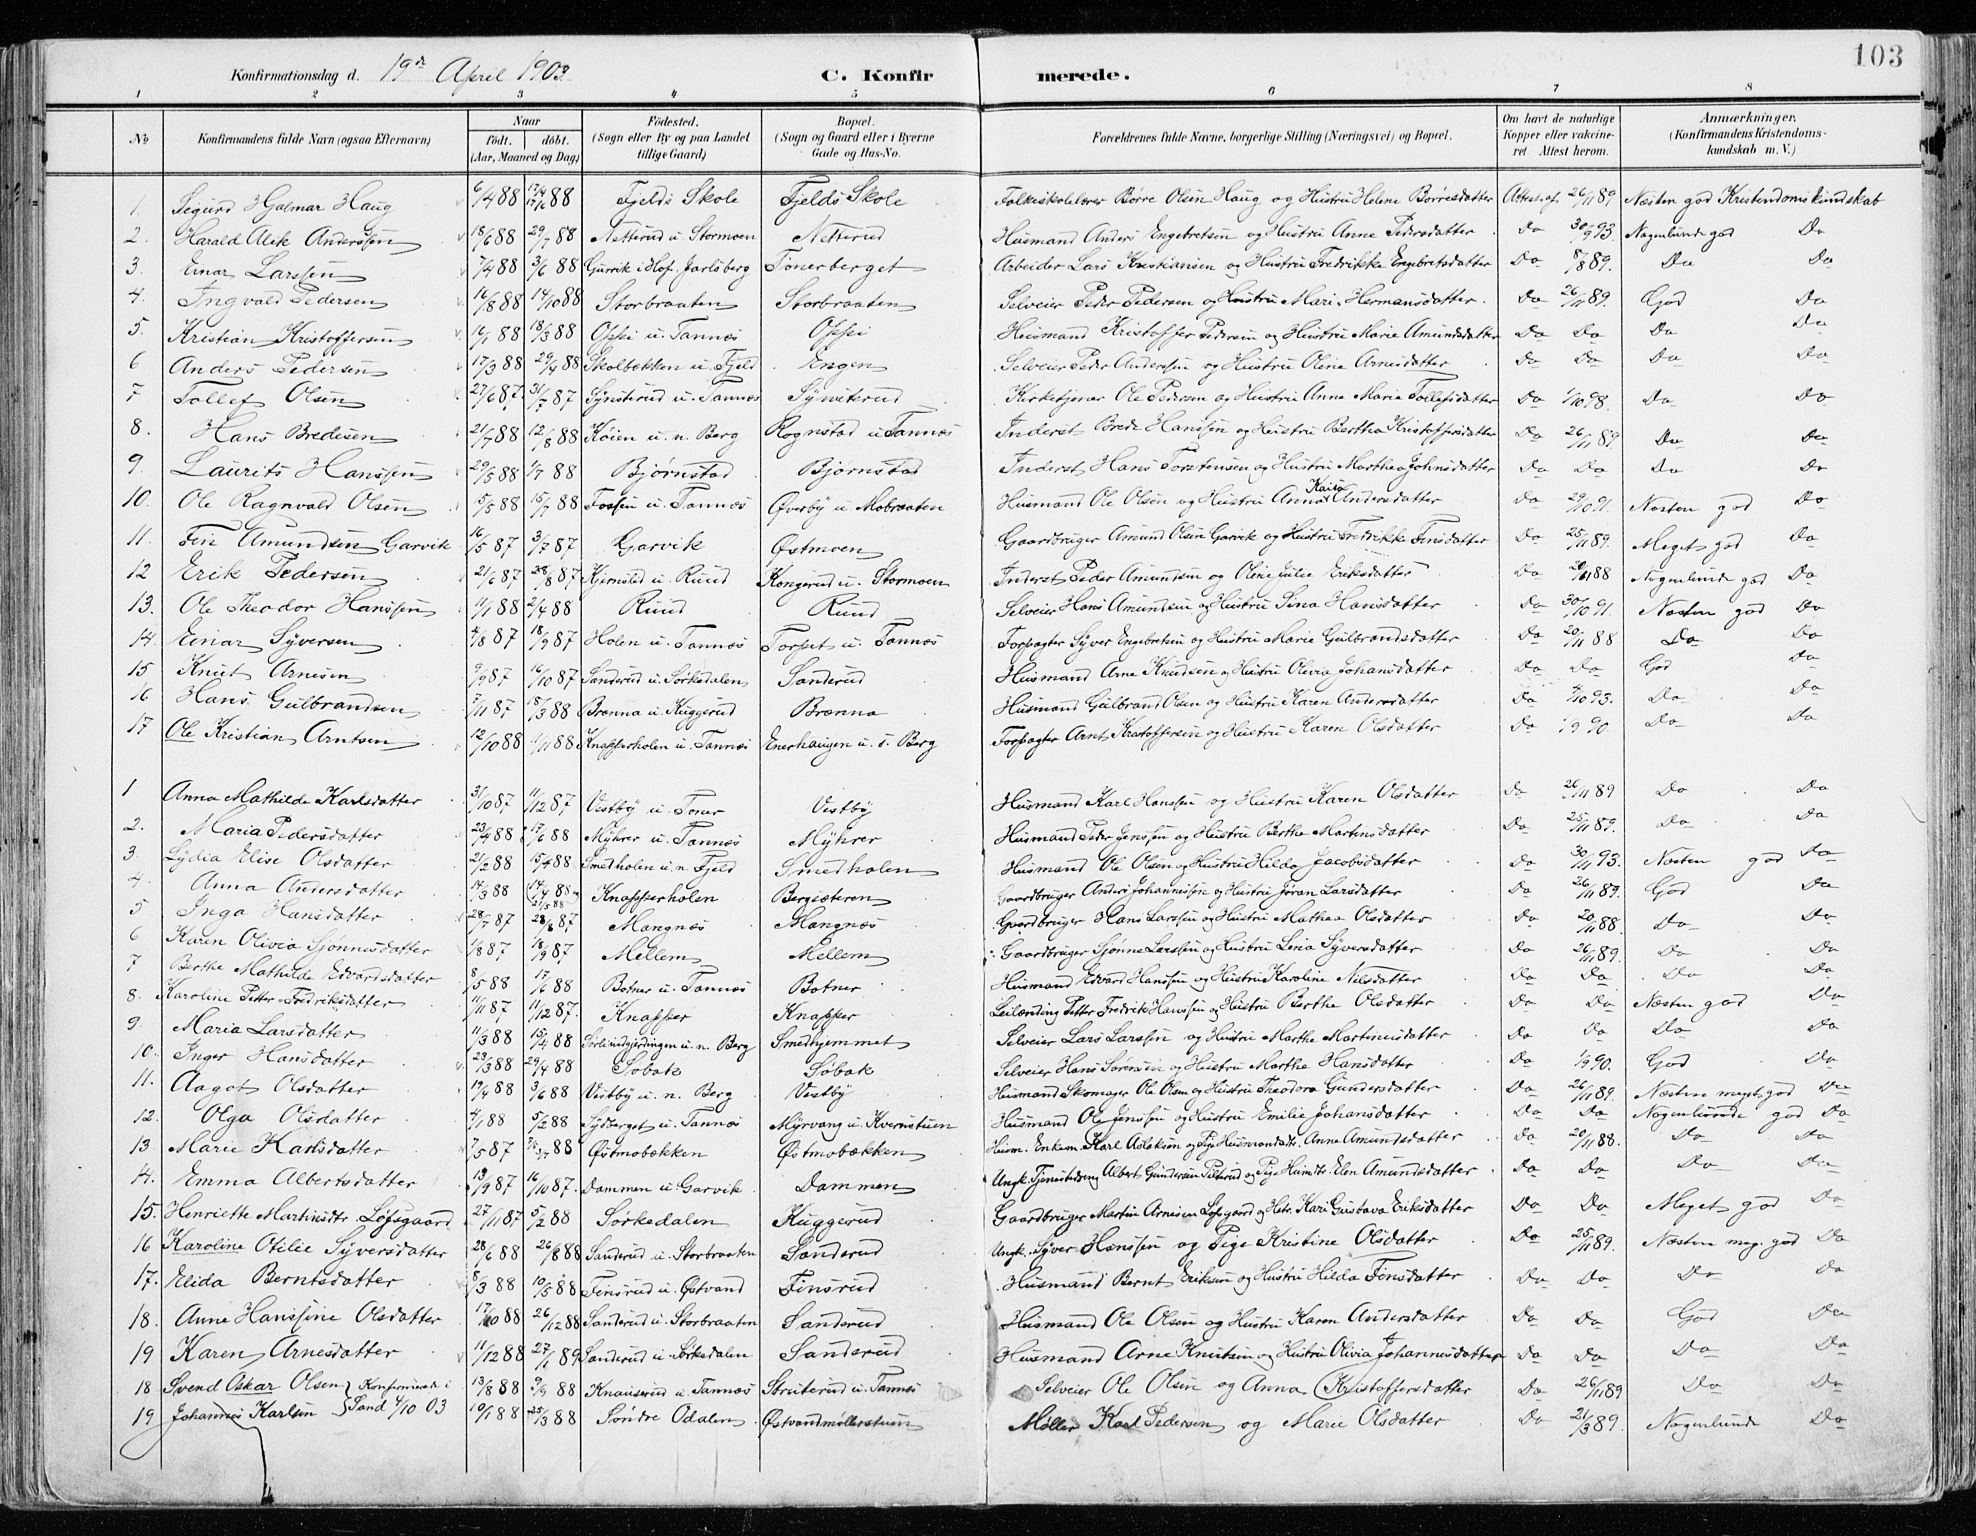 103
Konfirmationsdag d. 19de April 1903. C. Konfirmerede.
1 2 3 4 5 6 7 8
No Konfirmandens fulde Navn (ogsaa Efternavn) Naar Födt. döbt. (Aar, Maaned og Dag) Födested. (Sogn eller By og paa Landet tillige Gaard) Bopæl. (Sogn og Gaard eller i Byerne Gade og Hus-No. Forældrenes fulde Navne, borgerlige Stilling (Næringsvei) og Bopæl. Om havt de naturlige Kopper eller vakcineret Attest herom. Anmærkninger. (Konfirmandens Kristendomskundskab m. V.)
1. Sigurd Hjalmar Haug 6/4 88 Fjelds Skole Fjelds Skole Folkeskolelærer Børre Olsen Haug og Hustru Helene Børresdatter Attest af 26/11 89 Næsten god Kristendomskundskab
2. Harald Alik Anderssen 18/6 88 29/7 88 Netterud u. Stormoen Netterud Husmand Anders Engebretsen og Hustru Anne Pedersdatter Do 30/9 93. Nogenlunde god Do
3. Einar Larssen 7/4 88 3/6 88 Gurrik i Hof. Jarlsberg Tonerberget Arbeider Lars Kristiansen og Hustru Fredrikke Engebretsdatter Do 8/8 89. Do Do
4. Ingvald Pedersen 16/8 88 14/10 88 Storbraaten Storbraaten Selveier Peder Pedersen og Hustru Mari Hermansdatter. Do 26/11 89. God Do
5. Kristian Kristoffersen 19/1 88 18/3 88 Opsei u. Tannæs Opsei Husmand Kristoffer Pedersen og Hustru Marie Amundsdatter Do Do Do Do
6 Anders Pedersen 17/3 88 29/4 88 Skolbækken u. Fjeld Engen Selveier Peder Andersen og Hustru Oline Arnesdatter Do Do Do Do
7 Tollef Olsen 27/6 87. 31/7 87 Synsterud u. Tannæs Synsterud Kirketjener Ole Pedersen og Hustru Anne Marie Tollefsdatter Do 1/10 98. Do Do
8. Hans Bredesen 21/7 88 12/8 88 Køien u. n. Berg Rognstad u Tannæs Inderst Brede Hanssen og Hustru Bertha Kristoffersdatter Do 26/11 89. Do Do
9. Laurits Hanssen 29/5 88 1/7 88 Bjørnstad Bjørnstad Inderst Hans Torstensen og Hustru Marthea Johnsdatter Do Do Do Do
10. Ole Ragnvald Olsen 5/5 88 15/7 88 Fossen u. Tannæs Øverby u. Mobraaten Husmand Ole Olsen og Hustru Anna Kaisa Andersdatter Do 29/10 91. Næsten god Do
11. Fin Amundsen Garvik 16/5 87 3/7 87 Garvik Østmoen Gaardbruger Amund Olsen Garvik og Hustru Fredrikke Finsdatter Do 25/11 89. Meget god Do
12 Erik Pedersen 21/6 87 28/8 87 Kjernsled u. Ruud Kongerud u. Stormoen Inderst Peder Amundsen og Oline Julie Eriksdatter Do 20/11 88 Nogenlunde god Do
13. Ole Theodor Hanssen 11/1 88 2/4 88 Ruud Ruud Selveier Hans Amundsen og Hustru Sina Hansdatter Do 30/10 91. Næsten god Do
14. Einar Syversen 4/8 87 18/9 87 Holen u. Tannæs Torset u. Tannæs Forpagter Syver Engebretsen og Hustru Marie Gulbrandsdatter Do 20/11 88 Do Do
15 Knut Arnesen 9/9 87 16/10 87 Sanderud u. Sørkedalen Sanderud Husmand Arne Knudsen og Hustru Olivia Johansdatter Do Do God Do
16 Hans Gulbrandsen 7/11 87 18/3 88 Brænna u. Kuggerud Brænna Husmand Gulbrand Olsen og Hustru Karen Andersdatter Do 4/10 93. Do Do
17 Ole Kristian Arntsen 12/10 88 11/11 88 Knapperholen u. Tannæs Enerhaugen u. s. Berg Forpagter Arnt Kristoffersen og Hustru Karen Olsdatter Do 1/9 90. Do Do
1 Anna Mathilde Karlsdatter 31/10 87 11/12 87 Vestby u. Toner Vestby Husmand Karl Hanssen og Hustru Karen Olsdatter Do 26/11 89 Do Do
2. Maria Pedersdatter 23/4 88 17/6 88 Myhrer u. Tannæs Myhrer Husmand Peder Jenssen og Hustru Berthe Martinsdatter Do 25/11 89. Do Do
3. Lydia Elise Olsdatter 21/2 88 15/4 88 Smedholen u. n. Fjeld Smedholen Husmand Ole Olsen og Hustru Hilda Jacobsdatter Do 30/11 93. Næsten god Do
4. Anna Andersdatter 14/3 88 Knapperholen Bergsæteren Gaardbruger Anders Johannessen og Hustru Jøran Larsdatter Do 26/11 89. God Do
5 Inga Hansdatter 28/7 87 28/8 87 Mangnæs Mangnæs Gaardbruger Hans Larssen og Hustru Mathea Olsdatter Do 20/11 88. Do Do
6 Karen Olivia Sjønnesdatter 1/8 87 18/9 87 Mellem Mellem Gaardbruger Sjønne Larssen og Hustru Lena Syversdatter Do 26/11 89. Do Do
7 Berthe Mathilde Edvardsdatter 8/5 88 17/6 88 Botner u. Tannæs Botner Husmand Edvard Hanssen og Hustru Karoline Nilsdatter Do Do Do Do
8. Karoline Petter-Fredriksdatter 11/11 87 11/12 87. Knapper Knapper Leilænding Petter Fredrik Hanssen og Hustru Berthe Olsdatter Do Do Næsten god Do
9. Maria Larsdatter 11/3 88 15/4 88 Sørlindgjerdingen u. n. Berg Smedhjemmet Selveier Lars Larssen og Hustru Marthe Martinusdatter Do Do Do Do
10. Inger Hansdatter 23/3 88 29/4 88 Søbak Søbak Selveier Hans Sørensen og Hustru Marthe Hansdatter Do 1/9 90. God Do
11. Aagot Olsdatter 19/4 88 3/6 88 Vestby u. n. Berg Vestby Husmand Skomager Ole Olsen og Hustru Theodora Gundersdatter Do 26/11 89. Næsten meget god Do
12. Olga Olsdatter 4/1 88 5/2 88 Sydberget u. Tannæs Myrvang u. Kvernstuen Husmand Ole Jenssen og Hustru Emilie Johansdatter Do Do Nogenlunde god Do
13. Marie Karlsdatter 7/5 87 88 Østmobækken Østmobækken Husm. Enkem. Karl Aslaksen og Pige Husmandsdt. Anne Amundsdatter Do 20/11 88. Do Do
14. Emma Albertsdatter 13/9 87 16/10 87. Dammen u. Garvik Dammen Ungk. Tjenestedreng Albert Gundersen og Pige Husmdt. Elen Amundsdatter Do Do Do Do
15. Henriette Martinsdtr Løfsgaard 27/11 87 5/2 88 Sørkedalen Kuggerud Gaardbruger Martin Arnesen Løfsgaard og Hstr. Kari Gustava Eriksdatter Do Do Meget god Do
16 Karoline Otilie Syversdatter 28/6 88 26/8 88 Sanderud u. Storbraaten Sanderud Ungk. Syver Hanssen og Pige Kristine Olsdatter Do 25/11 89. Næsten meg. god Do
17. Elida Berntsdatter 8/3 88 10/5 88 Finsrud u. Østvand Finsrud Husmand Bernt Eriksen og Hustru Hilda Finsdatter Do Do Do Do
18. Anne Hanssine Olsdatter 17/10 88 26/12 88 Sanderud u. Storbraaten Sanderud Husmand Ole Olsen og Hustru Karen Andersdatter Do Do God Do
19 Karen Arnesdatter 11/12 88 27/1 89 Sanderud u. Sørkedalen Sanderud Husmand Arne Knutsen og Hustru Olivia Johannesdatter Do Do Do Do
18 Svend Oskar Olsen Konfirmerede i 13/8 88 9/9 88 Knauserud u. Tannæs Struterud u. Tannæs Selveier Ole Olsen og Anna Kristoffersdatter Do 26/11 89 Do Do
19 Johannes Karlsen Sand 4/10 03 19/1 88 25/3 88 Søndre Odalen Østvandmøllerstuen Møller Karl Pedersen og Marie Olsdatter Do 21/3 89. Nogenlunde Do